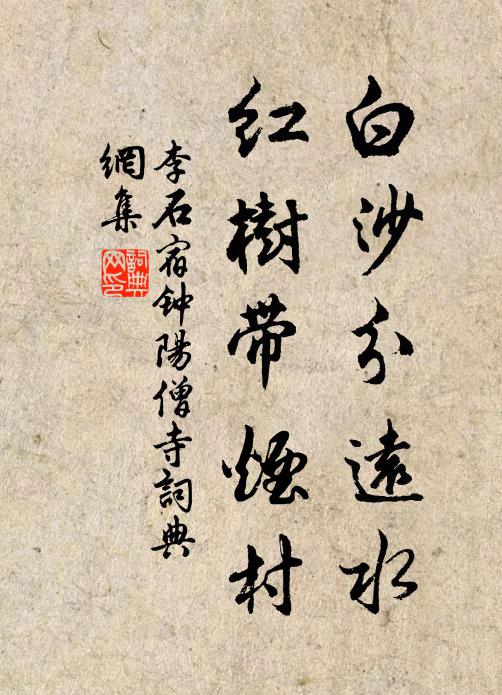 白沙分遠水
紅樹帶煙村
李石宿钟陽僧寺詞典
網集
詞典
网印